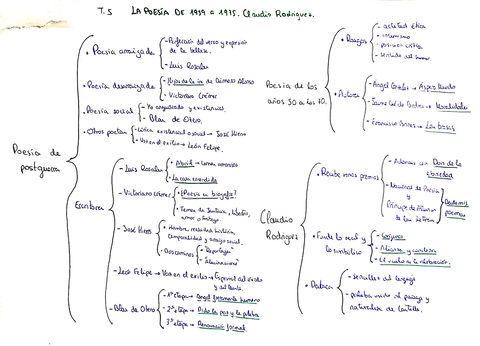 T.5 LA POESÍA DE 1939 a 1975. Claudio Rodríguez.
Poesía de postguerra
• Poesía arraigada
- Perfección del verso y expresión de la belleza.
- Luis Rosales
• Poesía desarraigada
- Hijos de la ira de Dámaso Alonso
- Victoriano Crémer
• Poesía social
- Yo angustiado y existencial.
- Blas de Otero.
• Otros poetas
- Lírica existencial o social → José Hierro
- Voz en el exilio → León Felipe.
Escritores
- Luis Rosales
• Abril → temas amorosos
• La casa encendida
- Victoriano Crémer
• ¿Poesía en biografía?
• Temas de justicia,
amor o trabajo.
- José Hierro
• Hombre, realidad histórica, temporalidad y
• Dos caminos
- "Reportajes"
- "Alucinaciones"
- León Felipe → Voz en el exilio → Español del éxodo y del llanto.
- Blas de Otero
- 1ª etapa → Ángel fieramente humano
- 2ª etapa → Pido la paz y la palabra
- 3ª etapa → Renovación formal.
Poesía de los años 50 a los 70.
• Rasgos
- actitud ética
- intimismo
- postura crítica
- sentido del humor
• Autores
- Ángel González → Áspero Mundo
- Jaime Gil de Biedma → Moralidades
- Francisco Brines → Las brasas
Claudio Rodríguez
• Recibe varios premios
- Adonáis con Don de la ebriedad
- Nacional de Poesía y Príncipe de Asturias de las Letras
poemas
• Funde lo real y lo simbólico
- Conjuros
- Alianza y condena
- El vuelo de la celebración.
• Destaca
- sencillez del lenguaje
- palabra unida al paisaje y naturaleza de Castilla.